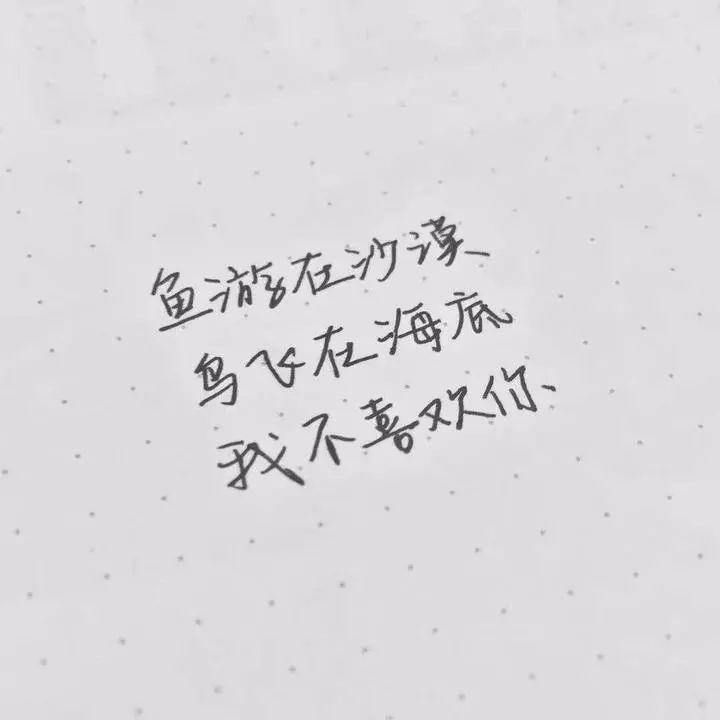 鱼游在沙漠
鸟飞在海底
我不喜欢你、